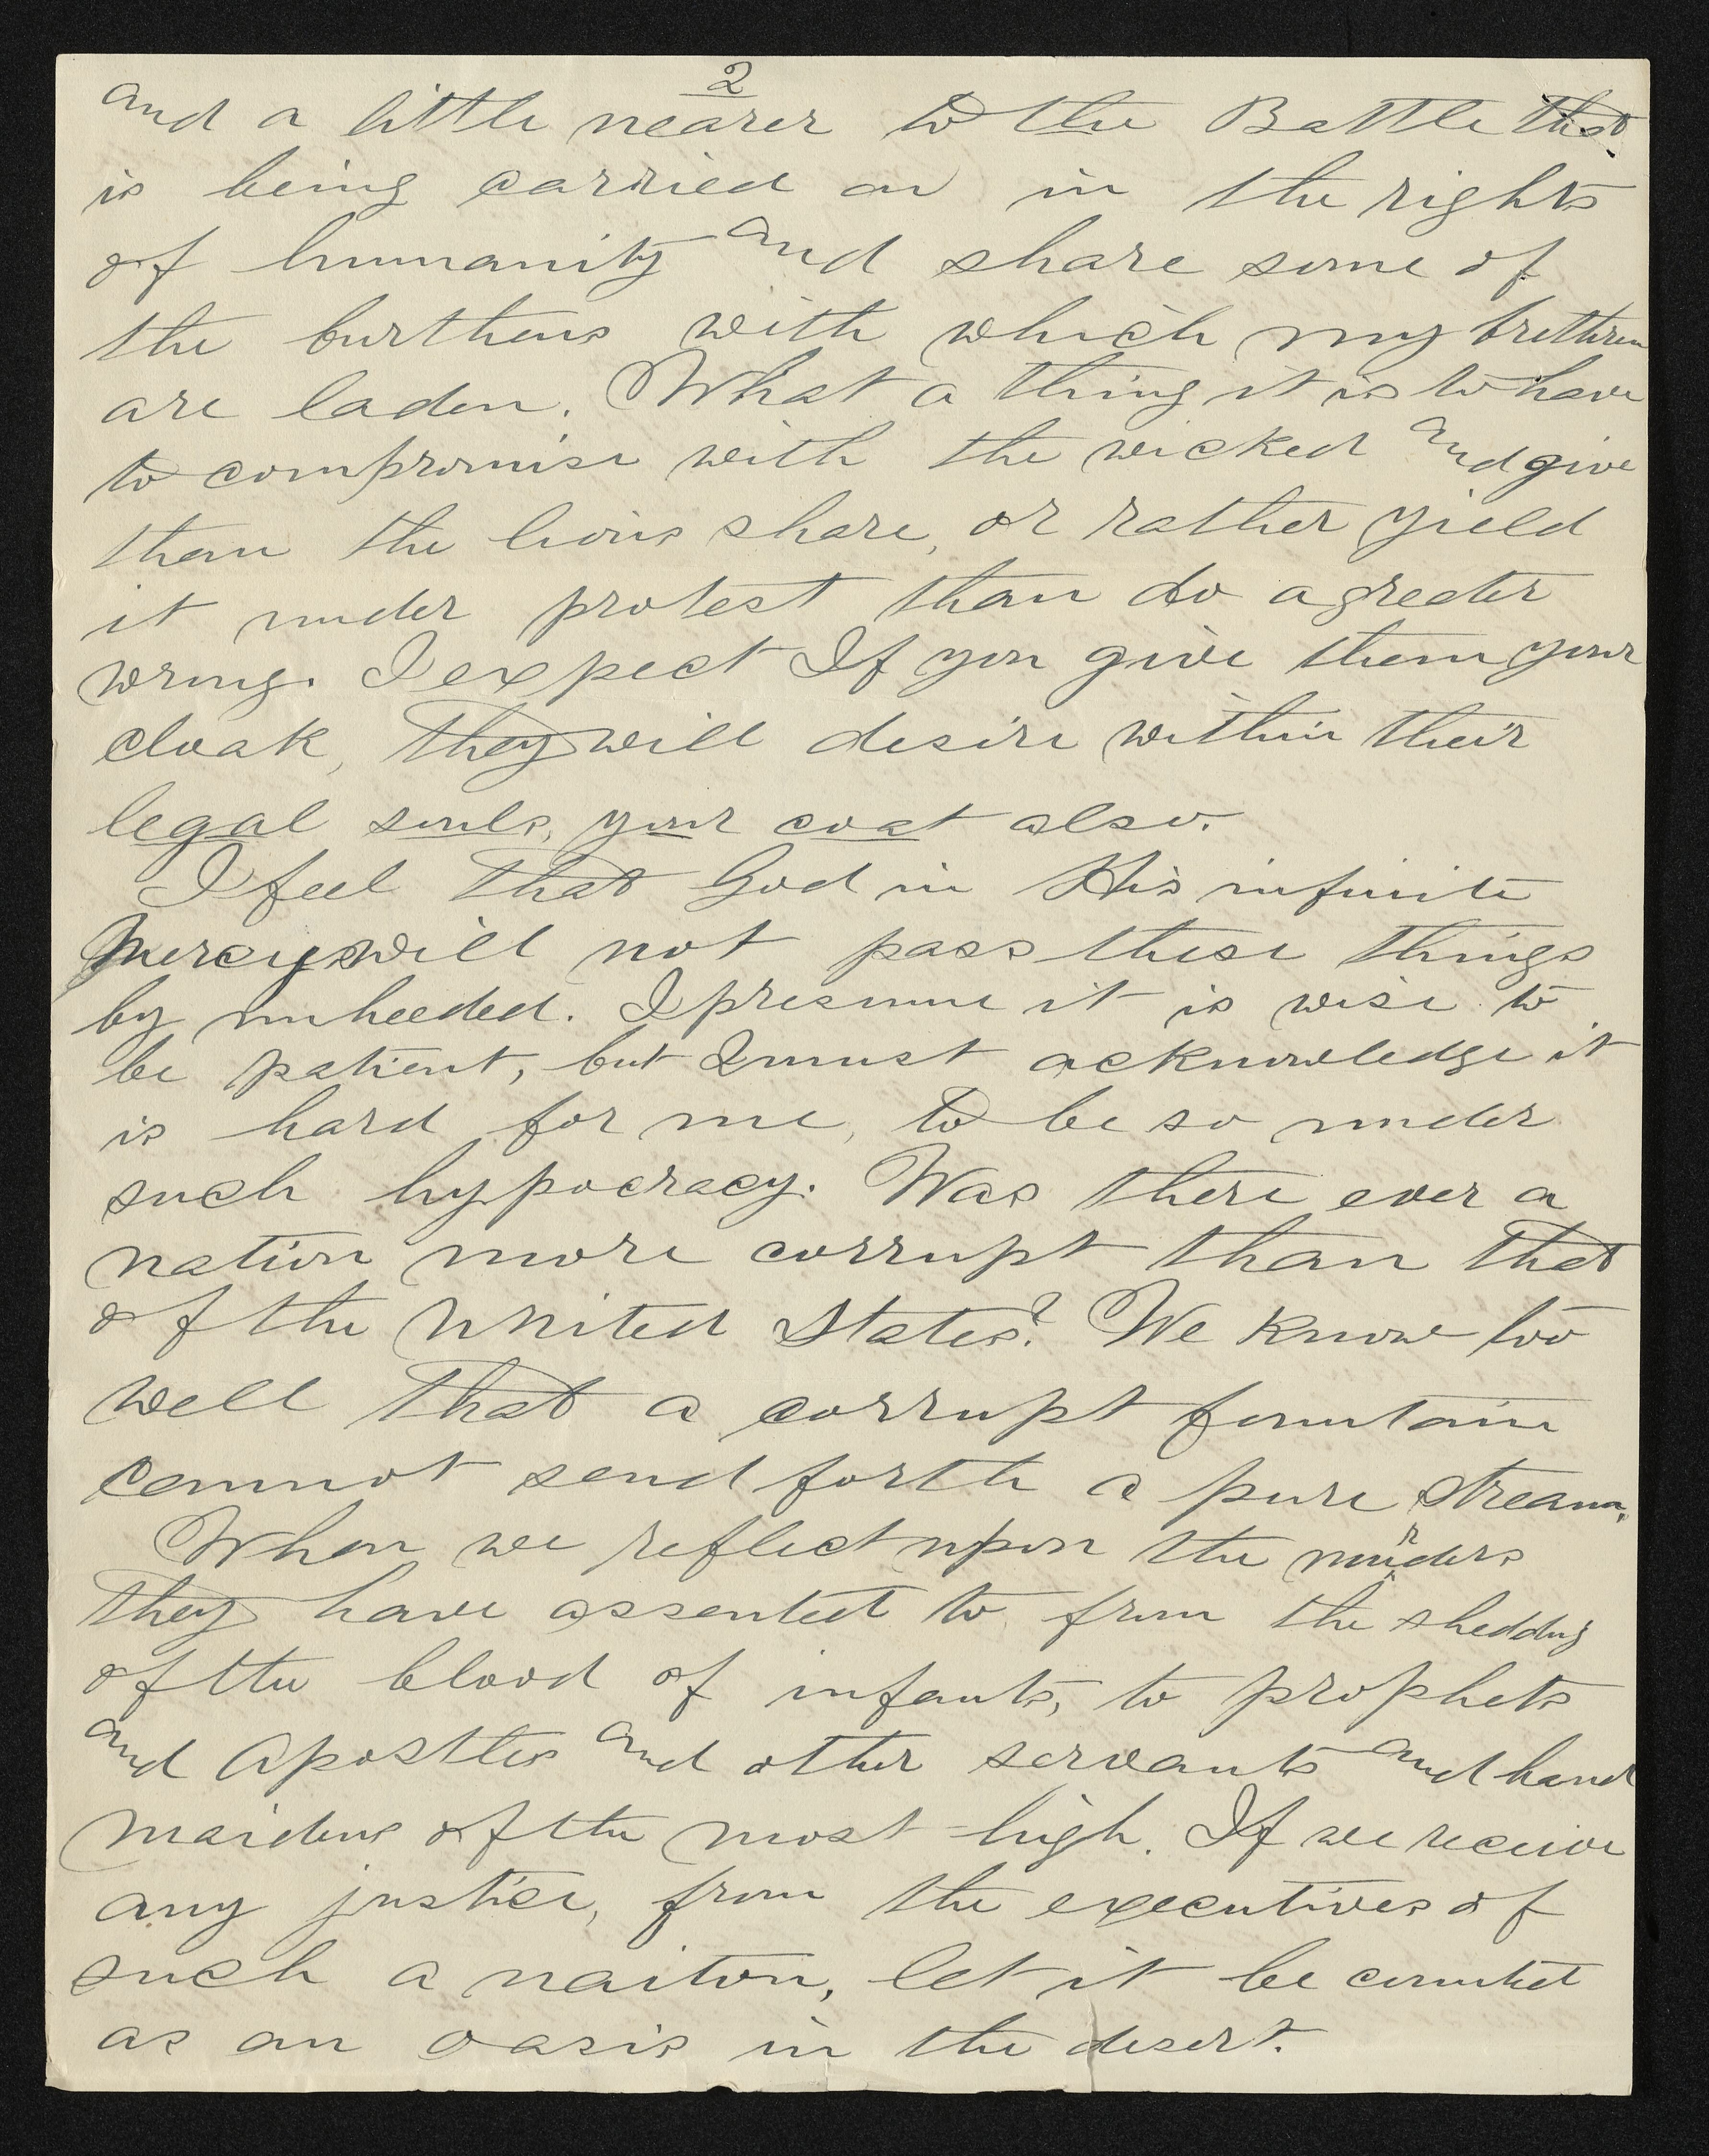 2
and a little nearer to the Battle that
is being carried on in the rights
of humanity and share some of
the burthens with which my brethren
are laden. What a thing it is to have
to compromise with the wicked and give
them the lions share, or rather yield
it under protest than do a greater
wrong. I expect If you give them your
cloak, they will desire within their
legal souls, your coat also.
I feel that God in His infinite
mercy will not pass these things
by unheeded. I presume it is wise to
be patient, but I must acknowledge it
is hard for me, to be so under
such hypocracy. Was there ever a
nation more corrupt than that
of the United States? We know too
well that a corrupt fountain
cannot send forth a pure stream.
When we reflect upon the murders
they have assented to from the shedding
of the blood of infants, to prophets
and Apostles and other servants and hand
maidens of the most high. If we receive
any justice, from the executives of
such a naiton, let it be counted
as an oasis in the desert.